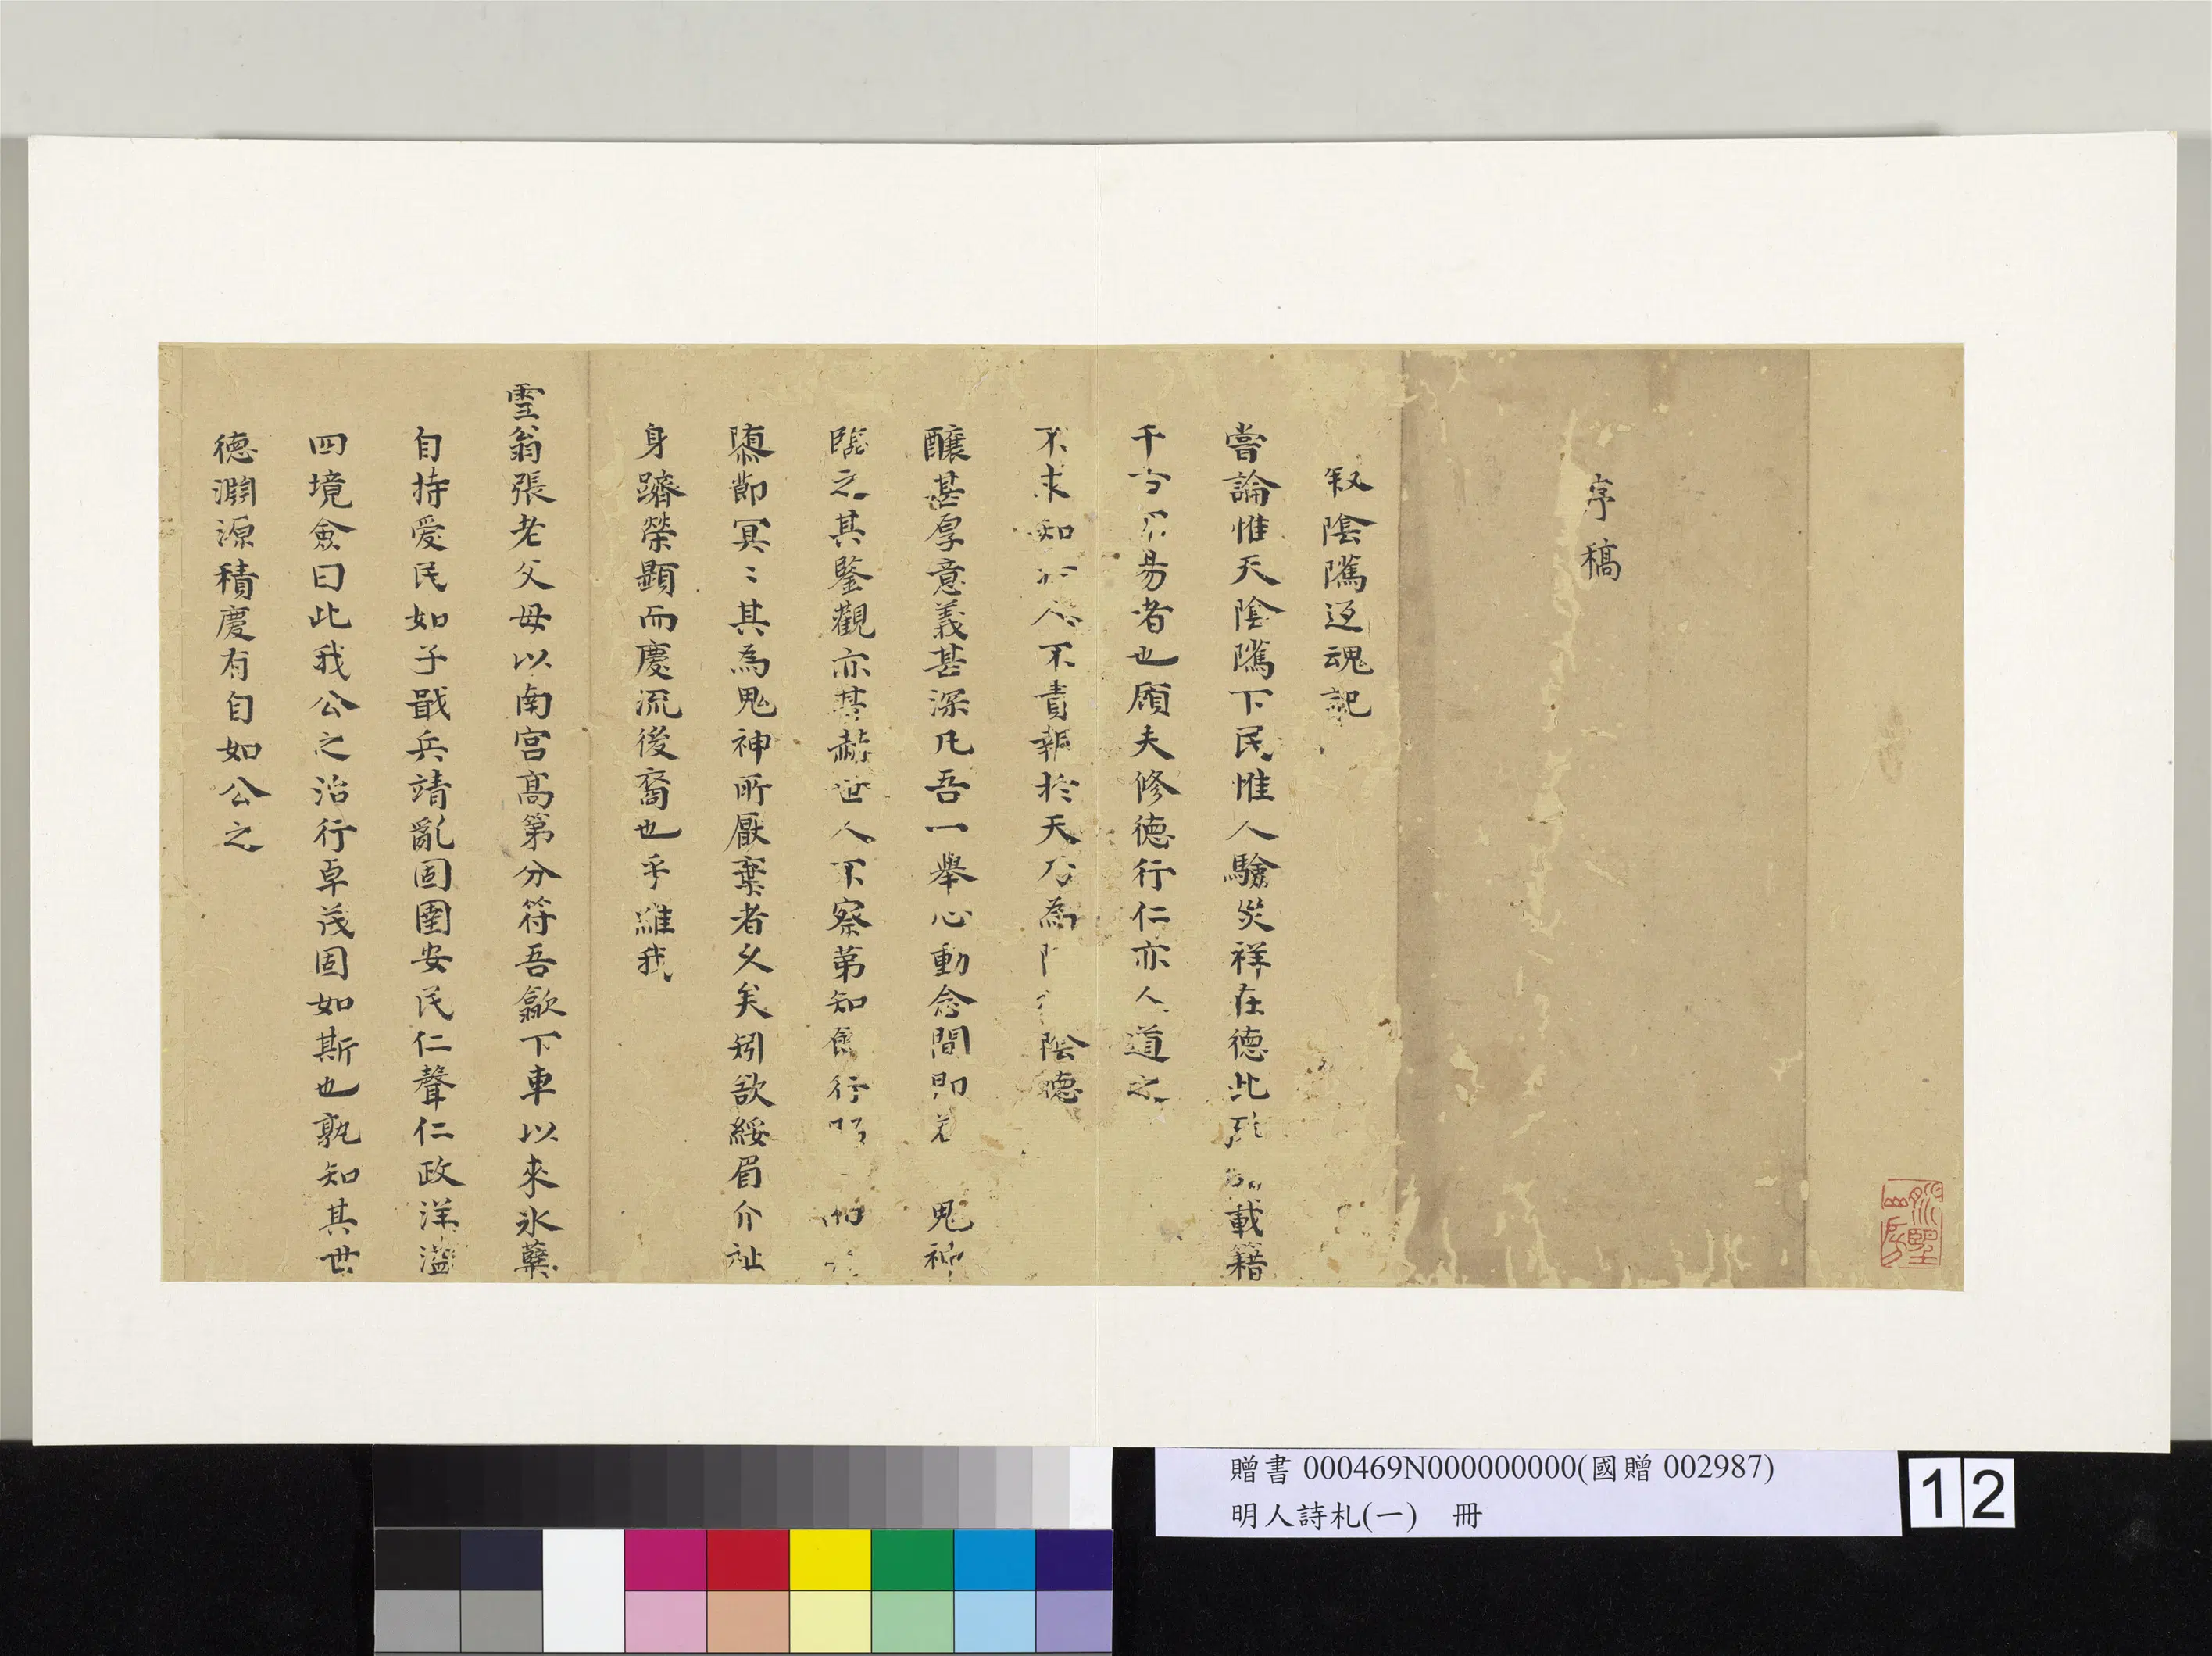 序稿
叙陰隲返魂記
嘗論惟天陰隲下民惟人驗災祥在德此 載籍
千古不易者也顧夫修德行仁亦人道之
不求知於人不責報於天乃為 陰德
釀甚厚意義甚深凡吾一舉心動念間即 鬼神
臨之其鑒觀亦甚赫世人不察第知 行
隳節冥〻其為鬼神所厭棄者久矣矧欲綏眉介祉
身躋榮顯而慶流後裔也乎維我
雪翁張老父母以南宮高第分符吾歙下車以來氷蘗
自持愛民如子戢兵靖亂固圉安民仁聲仁政洋溢
四境僉曰此我公之治行卓茂固如斯也孰知其世
德淵源積慶有自如公之
贈書 000469N000000000(國贈 002987)
明人詩札(一) 冊
12